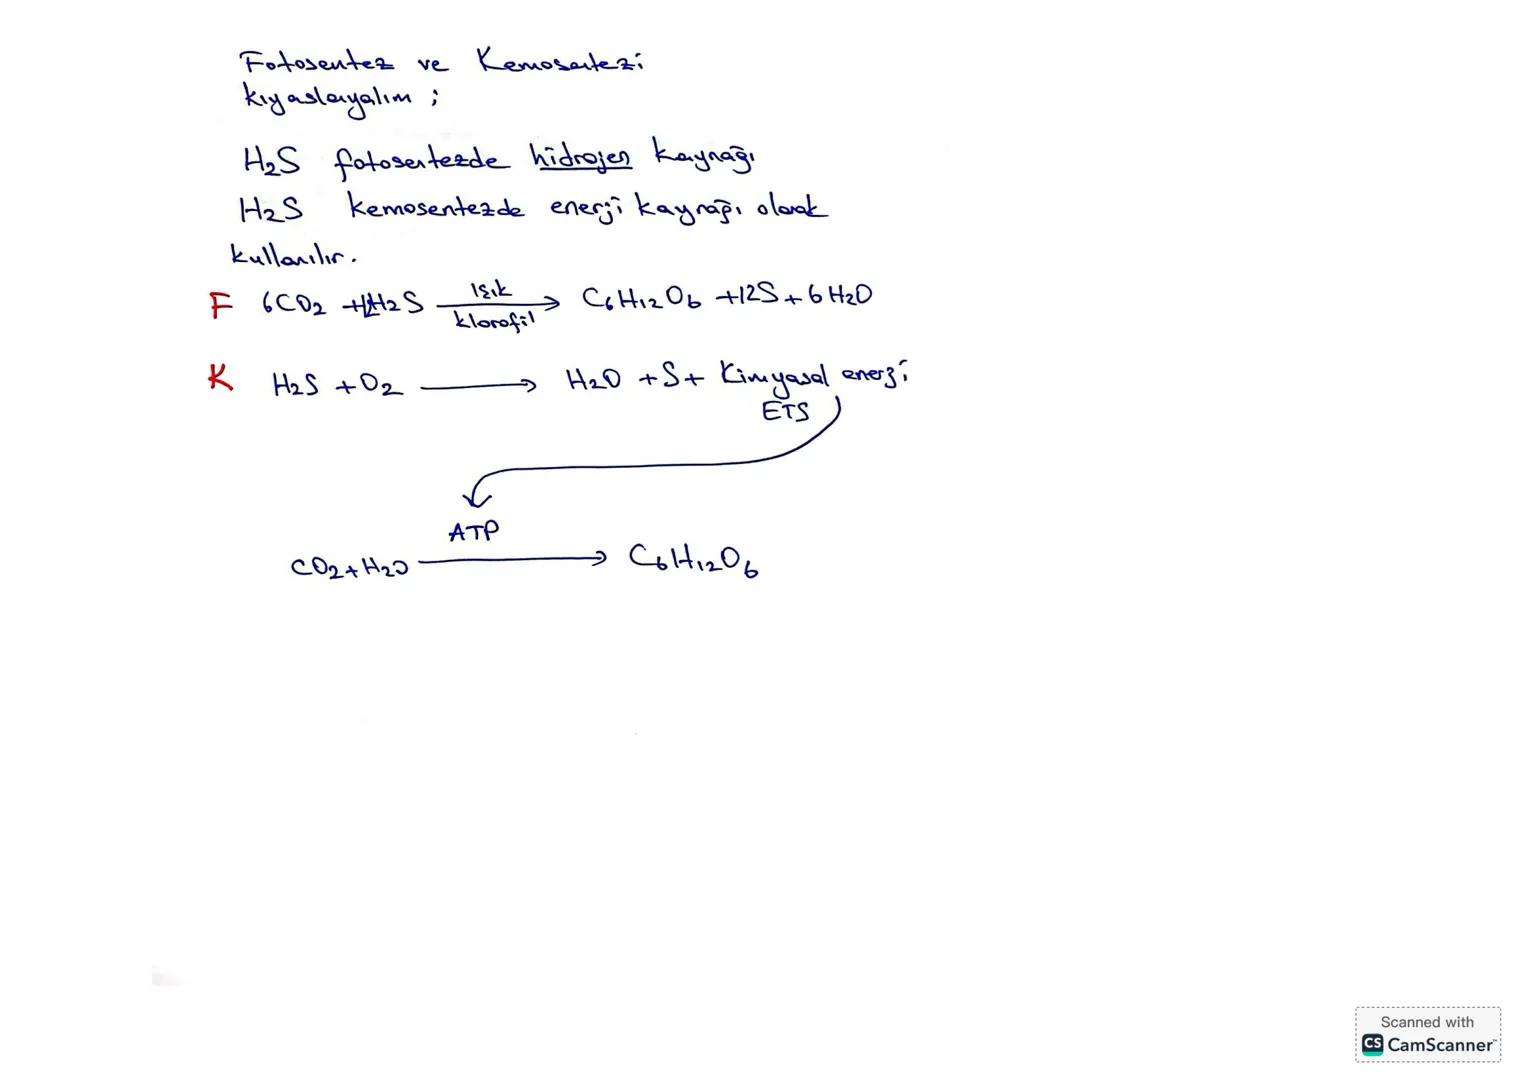 Fotosentez ve Kemosentezi
kıyaslayalım ;
H₂S fotosentezde hidrojen kaynağı
H₂S kemosentezde enerji kaynağı olarak
kullanılır.
F 6CO₂ +12H₂S Işık klorofil → C₆H₁₂O₆ +12S+6H₂O
K H₂S +O₂ → H₂O +S+ Kimyasal enerji
ETS
ATP
CO₂+H₂O → C₆H₁₂O₆
Scanned with
CS CamScanner™